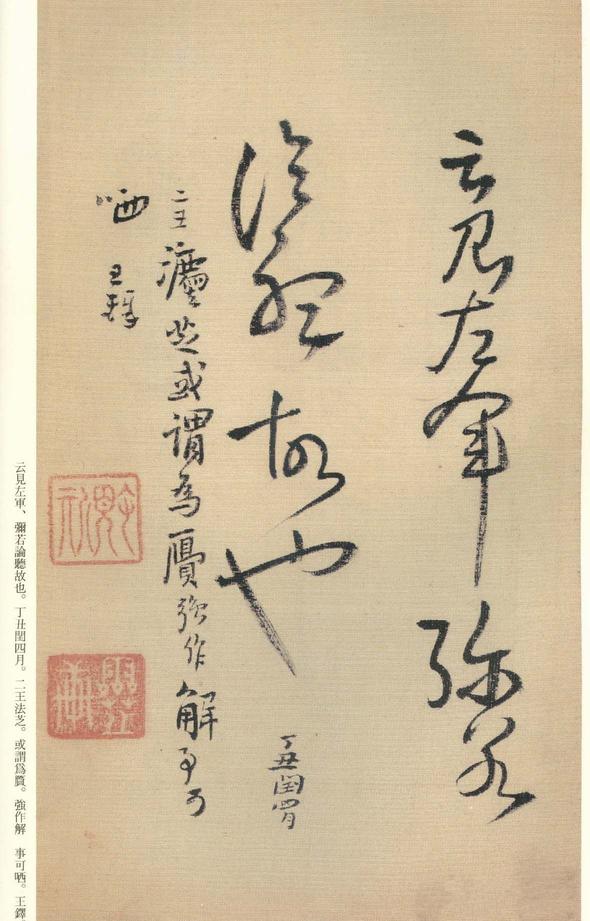 云見左軍彌若
論聽故也
丁丑閏四月
二王灋芝或謂為贋強作解事可
哂 王鐸
云見左軍、彌若論聽故也。丁丑閏四月。二王法芝。或謂爲贋。強作解 事可哂。王鐸